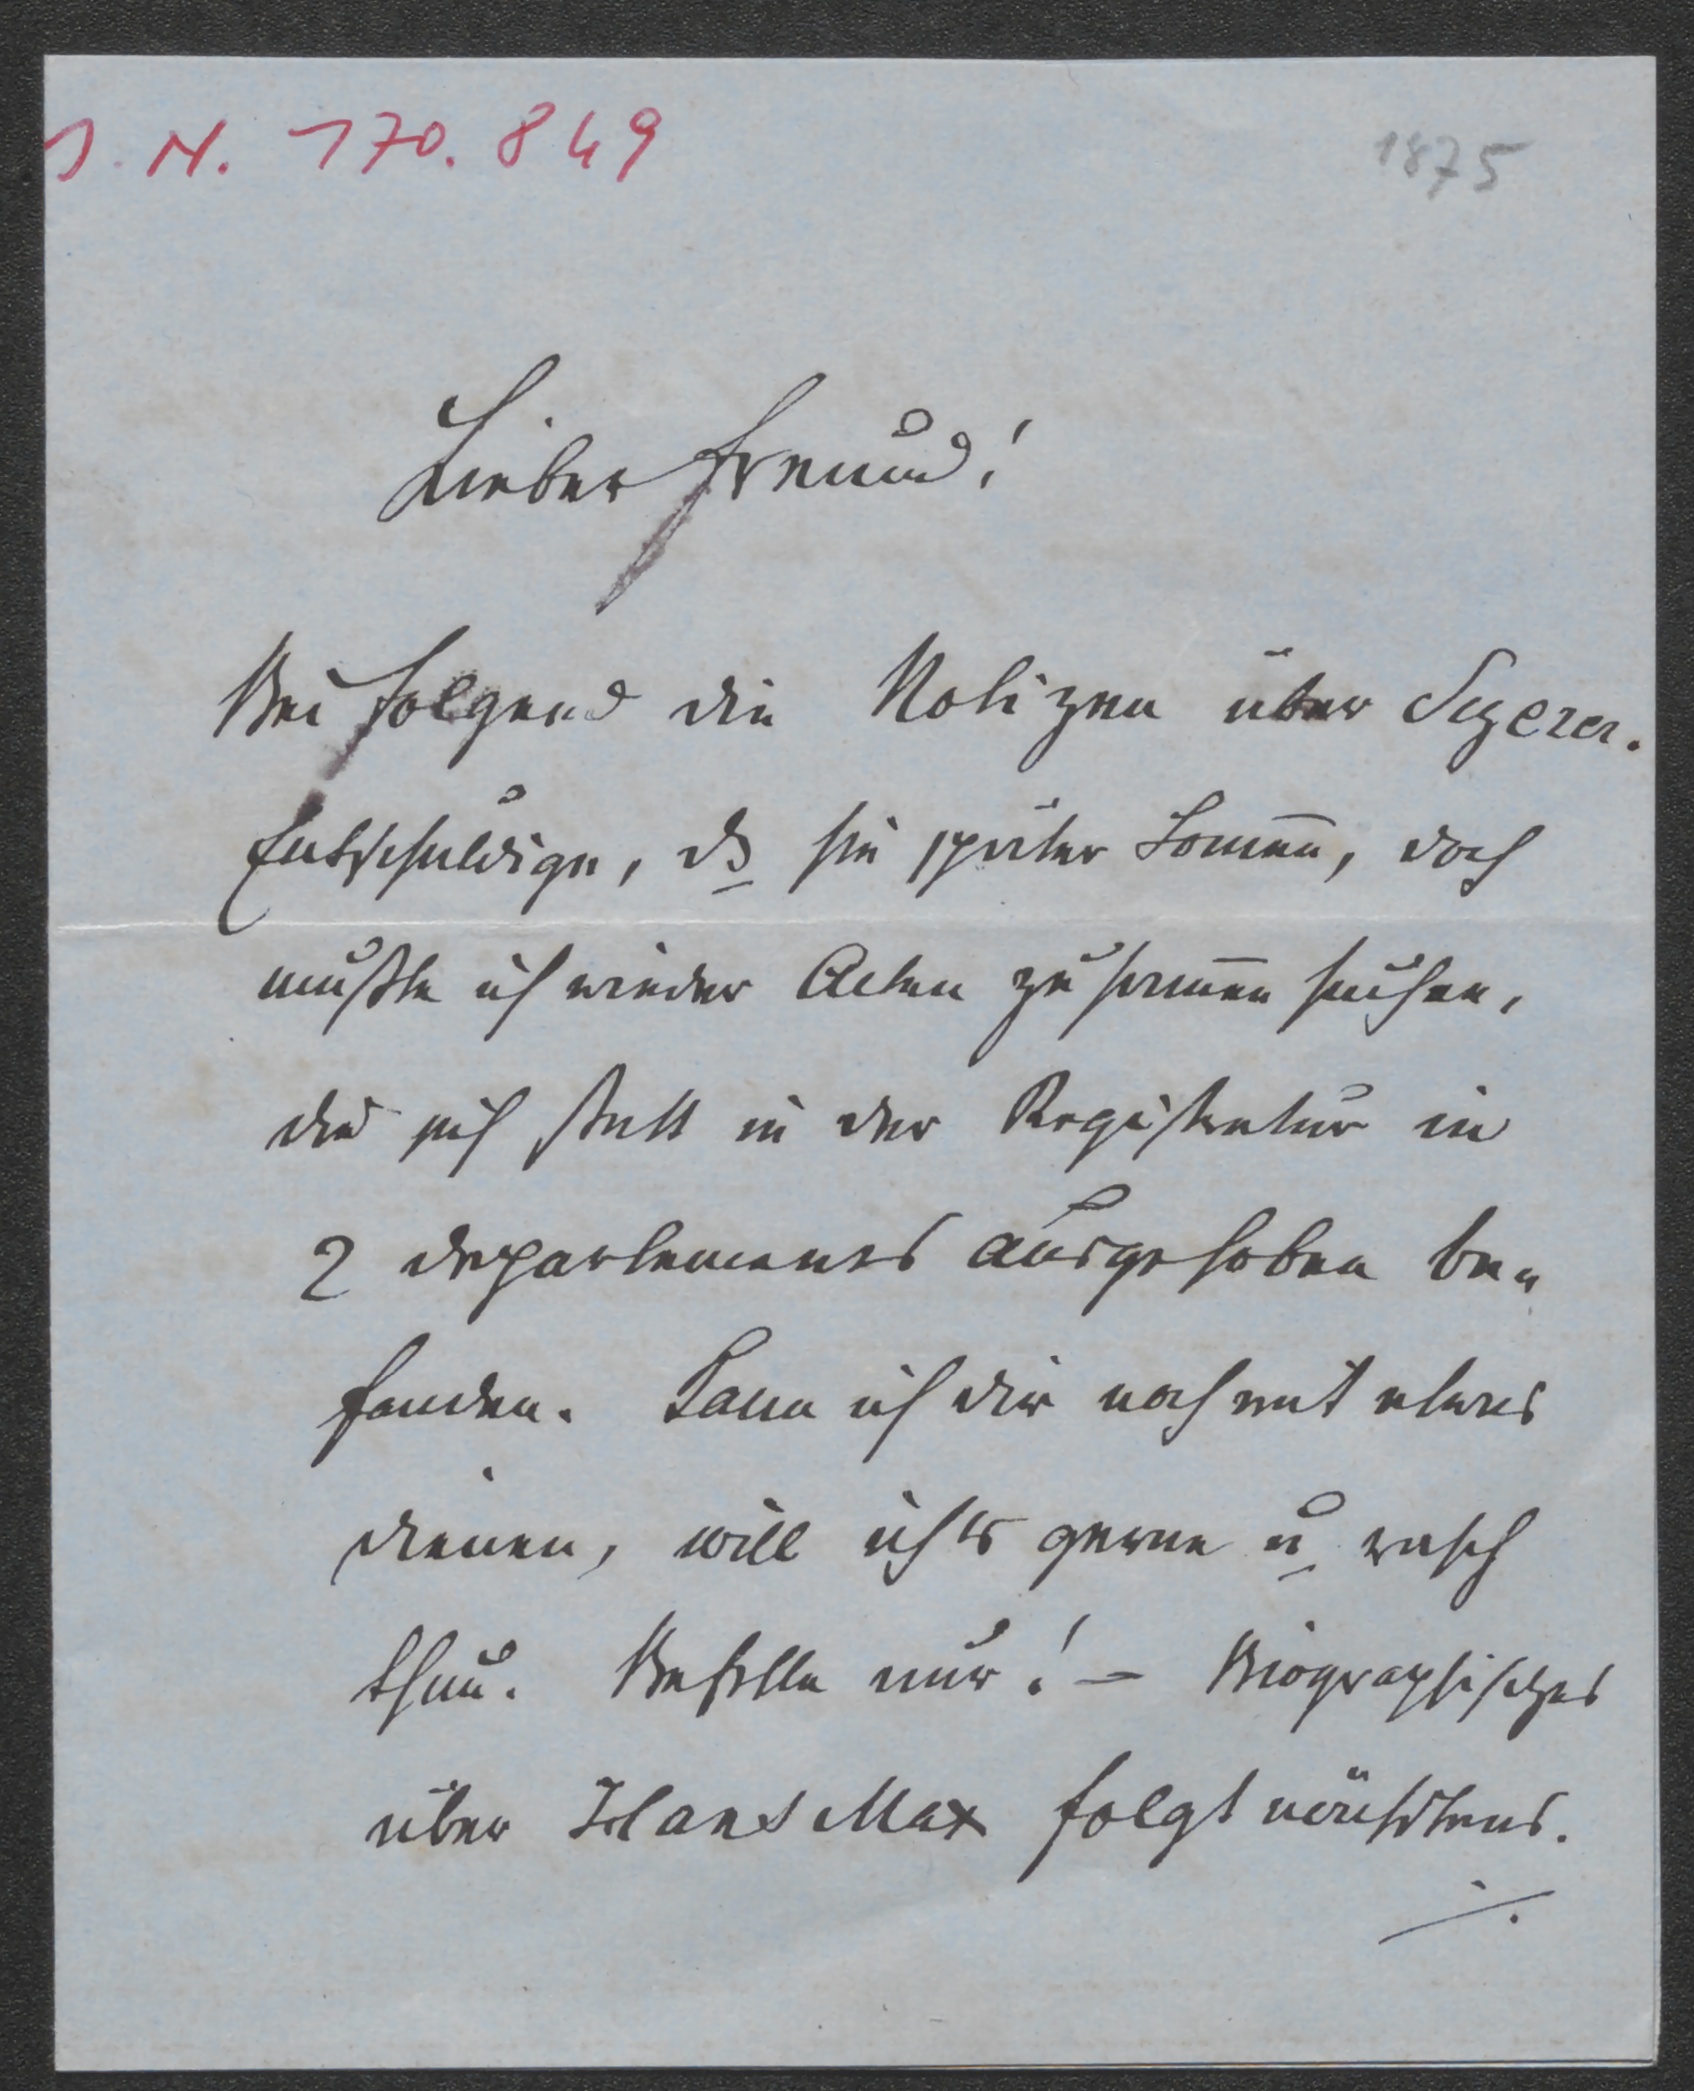 I. N. 170.849
1875
Lieber Freund!
Bei folgend die Notizen über
Entschuldige, dß sie später kom̄en, doch
mußte ich wieder Acten zusam̄en suchen,
die sich statt in der Registratur in
2 departements ausgehoben be-
fanden. Kann ich dir noch mit etwas
dienen, will ich's gerne u rasch
thun. Befehle nur! – Biographisches
über Hans Max folgt nächstens.
./.